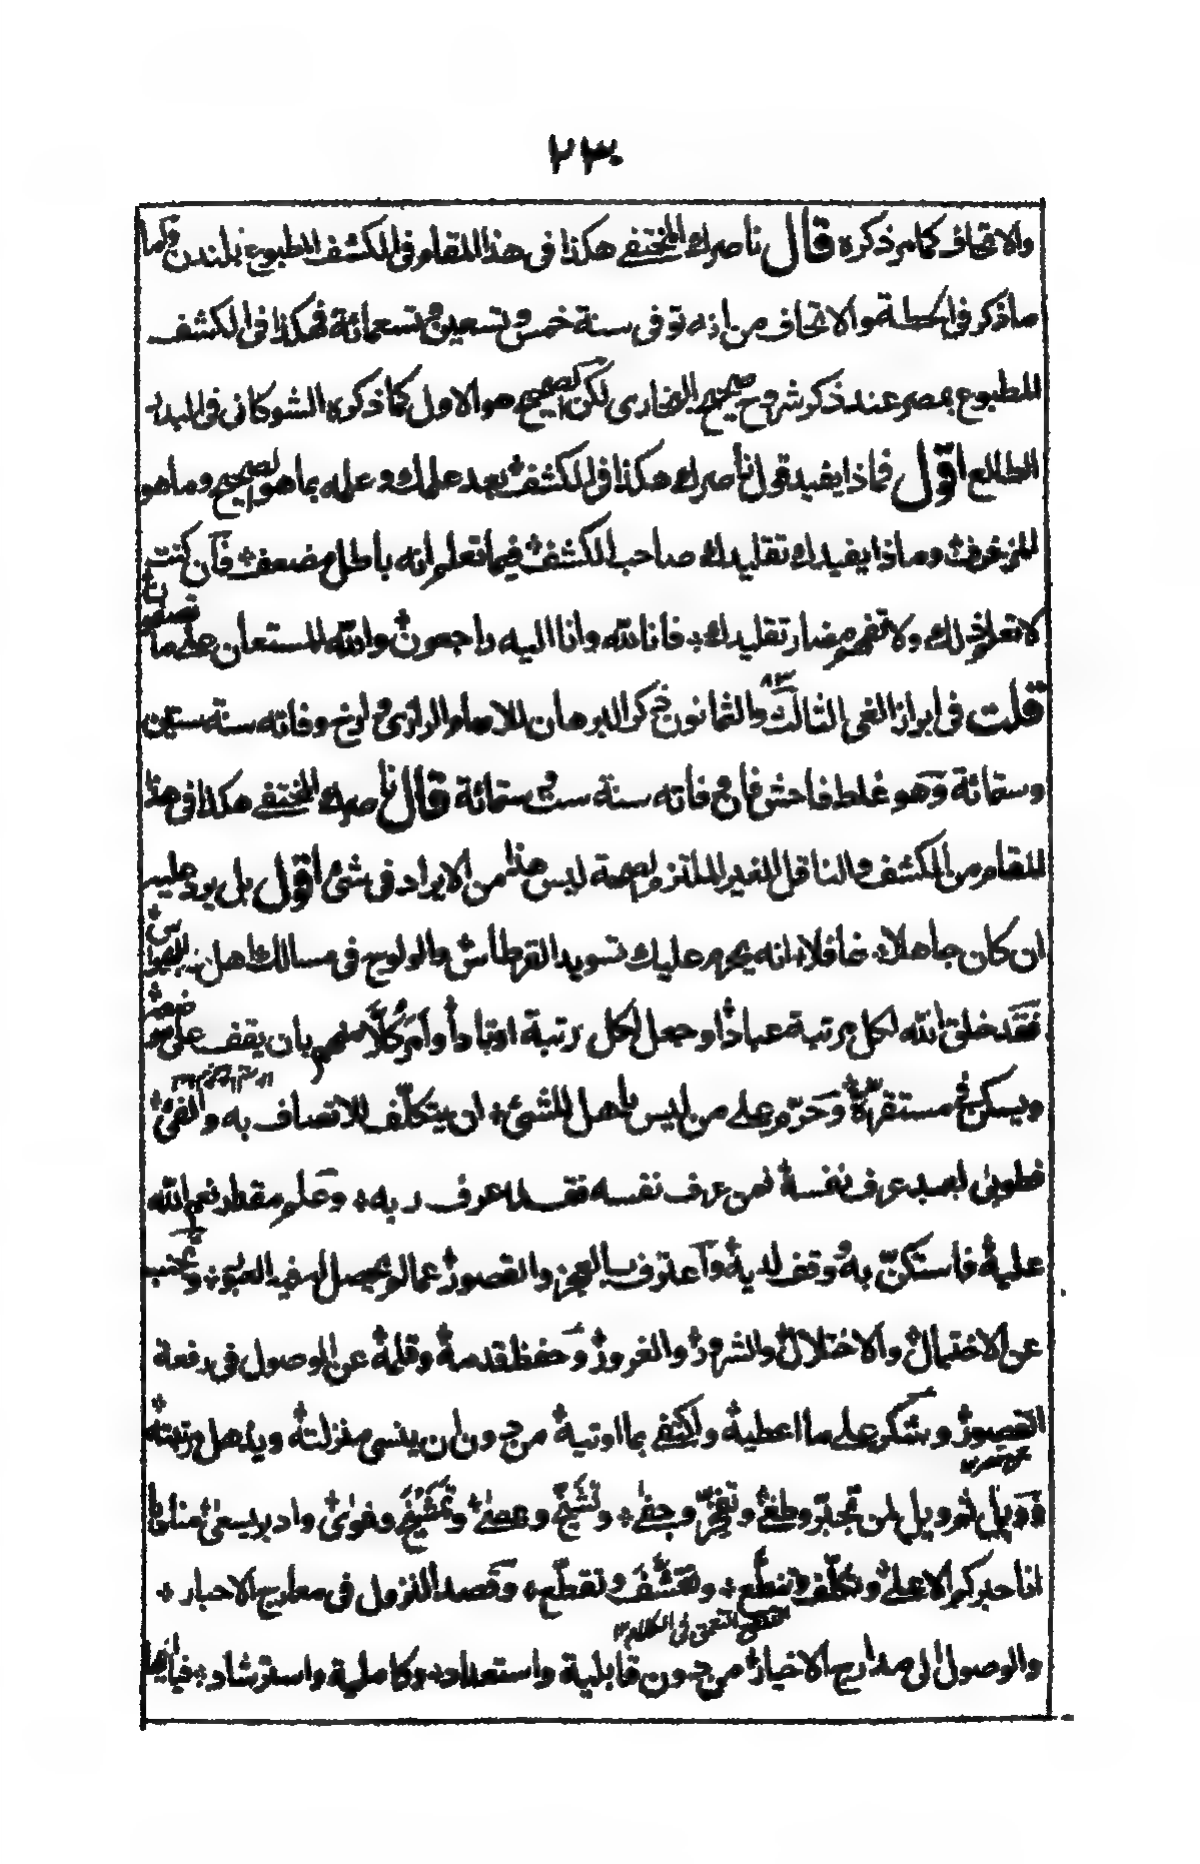 ٢٣٠
والاتحاف كما مر ذكره قال ناصرك المختفے هكذا فى هذا المقام فى الكشف المطبوع بلندن واما
ما ذكر فى الحطة والاتحاف من انه توفى سنة خمس وتسعين وتسعمائة فهكذا فى الكشف
المطبوع بمصر عند ذكر شروح صحيح البخارى لكن الصحيح هو الاول كما ذكره الشوكانى فى البدر
الطالع اقول فماذا يفيد قول ناصرك هكذا فى الكشف بعد علمك وعلمه بما هو الصحيح وما هو
المزخرف وماذا يفيدك تقليدك صاحب الكشف فيما تعلم انه باطل مضعف فان كنت
لا تعلم ذلك ولا تفهم مضار تقليدك فانا لله وانا اليه راجعون والله المستعان على ما تصفون
قلت فى ابراز الغى الثالث والثمانون ذكر البرهان للامام الرازى وارخ وفاته سنة ستين
وستمائة وهو غلط فاحش فان وفاته سنة ست وستمائة قال ناصرك المختفے هكذا فى هذا
المقام من الكشف والناقل الغير الملتزم لصحة ليس هذا من الايراد فى شئ اقول بل يرد عليه
ان كان جاهلا غافلا انه يحرم عليك تسويد القرطاس والولوج فى مسالك اهل
فقد خلق الله لكل مرتبة عبادا وجعل لكل رتبة اوتادا وامر كلا منهم بان يقف على موضعه
ويسكن مستقره وحرم على من ليس باهل للشئ ان يتكلف للاتصاف به والفئ
فطوبى لعبد عرف نفسه فمن عرف نفسه فقد عرف ربه وعلم مقدار نعم الله
عليه فاستكن به وقف لديه واعترف بالعجز والقصور عما لم يحصل له ويجتنب
عن الاختيال والاختلال والشرور والغرور وحفظ قدمه وقلمه عن الوصول فى دفعة
القصور وشكر على ما اعطيه واكتفى بما اوتيه من دون ان ينسى منزلته ويذهل مرتبته
فويل ثم ويل لمن تجبر وطغى وتفجر وجفى وتشيخ وعصى وغوى وادبر يسعى مناديا
انا حبركم الاعلى وتكلف وتنطع وتقشف وتقطع وقصد النزول فى معارج الاحبار
التنطع التعمق فى الكلام ١٢
والوصول الى مدارج الاخيار من دون قابلية واستعداد وكاملية واسترشاد فيا ايها